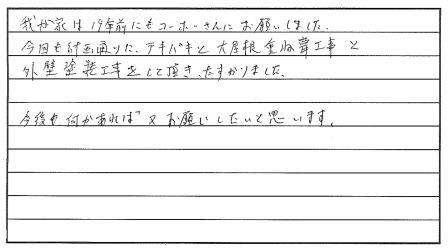 我が家は19年前にもコーホーさんにお願いしました。
今回も計画通りに、テキパキと大屋根重ね葺工事と
外壁塗装工事をして頂き、たすかりました。
今後も何かあれば又お願いしたいと思います。